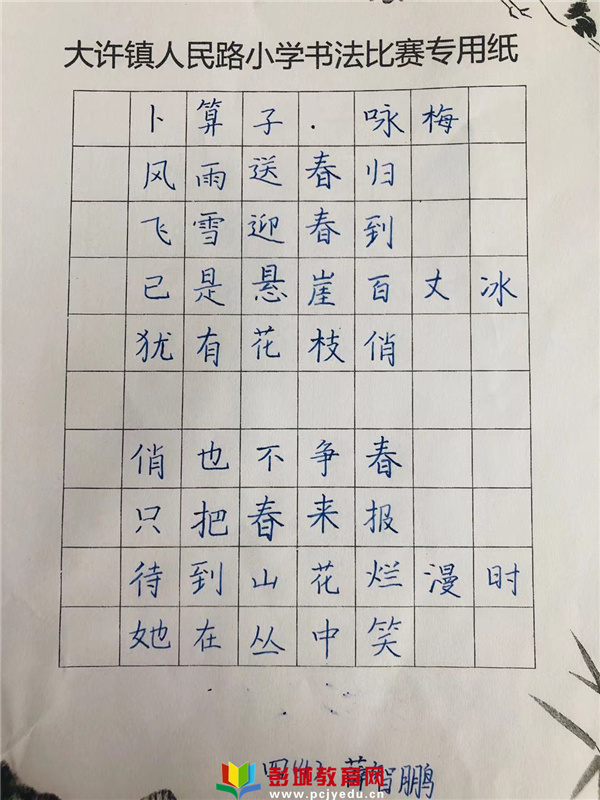 大许镇人民路小学书法比赛专用纸
卜算子·咏梅
风雨送春归
飞雪迎春到
已是悬崖百丈冰
犹有花枝俏
俏也不争春
只把春来报
待到山花烂漫时
她在丛中笑
智鹏
彭城教育网
www.pcjyedu.cn